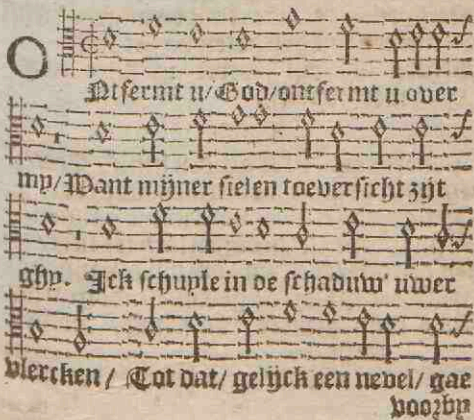 O
Ntfermt u/God/ontfermt u over
my/Want mijner sielen toeversicht zijt
ghy. Ick schuyle in de schaduw' uwer
vlercken / Tot dat/ gelijck een nevel/ gae
voorby